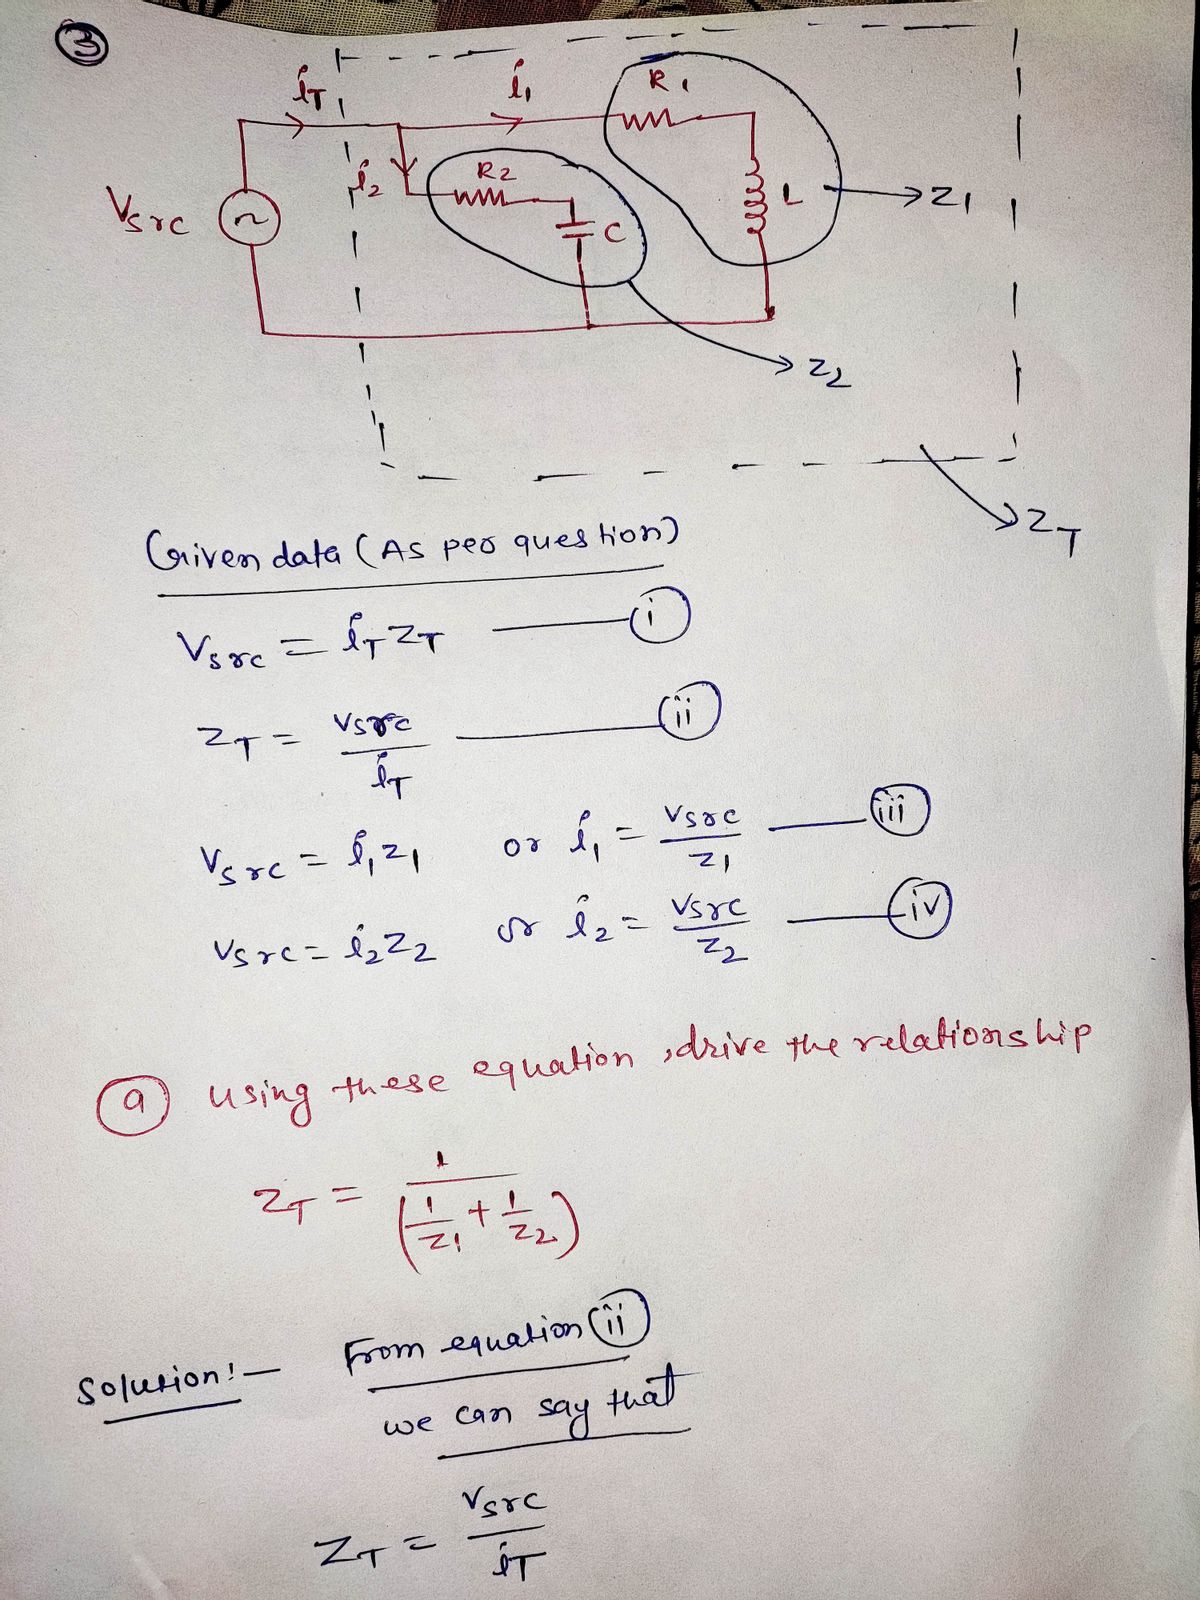 3
iT
i1
R1
Vsrc
~
i2
R2
C
L
Z1
Z2
ZT
Given data (As per question)
Vsrc = iT ZT — (i)
ZT = Vsrc / iT — (ii)
Vsrc = i1 Z1 or i1 = Vsrc / Z1 — (iii)
Vsrc = i2 Z2 or i2 = Vsrc / Z2 — (iv)
(a) using these equation, drive the relationship
ZT = 1 / (1/Z1 + 1/Z2)
Solution:- From equation (ii)
we can say that
ZT = Vsrc / iT